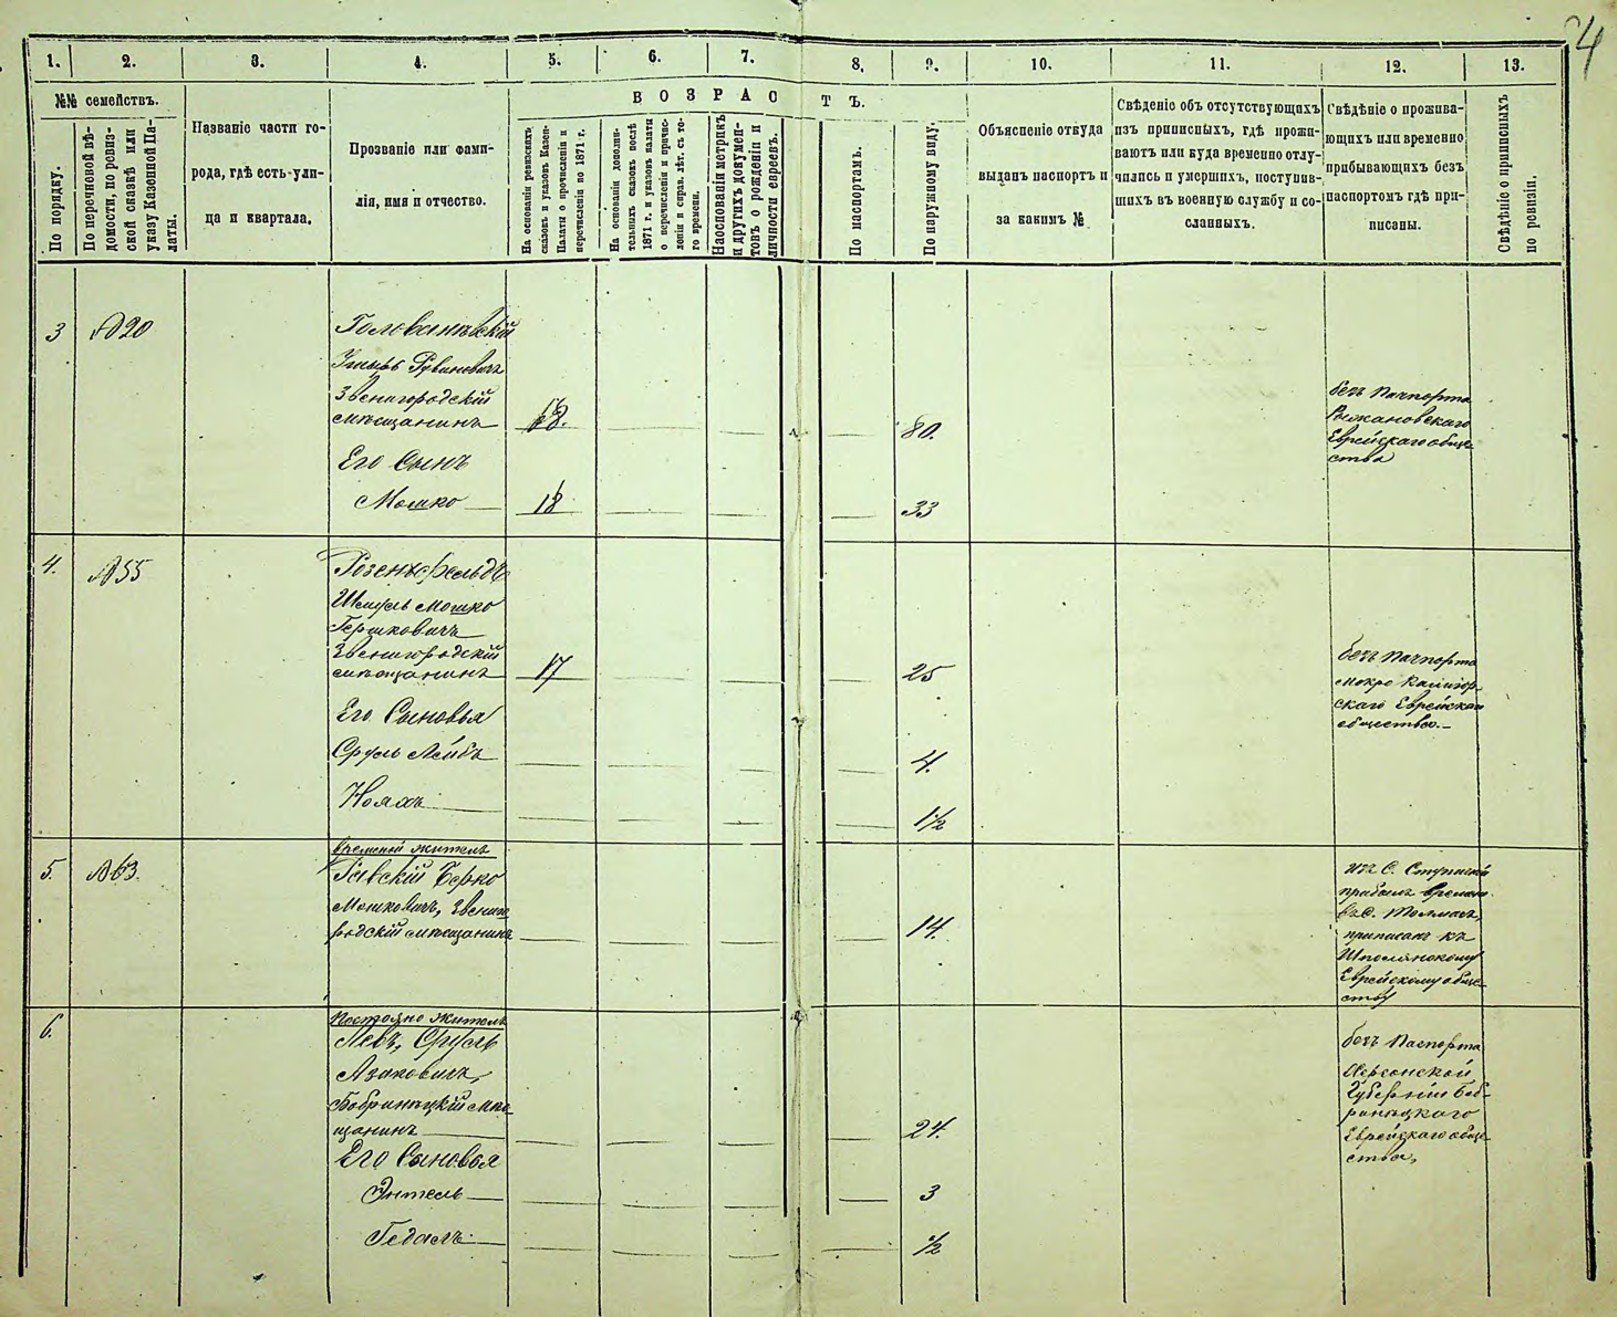 4
1.
2.
3.
4.
5.
6.
7.
8.
9.
10.
11.
12.
13.
№№ семействъ.
По порядку.
По перечиновой вѣ-
домости, по ревиз-
ской сказкѣ или
указу Казенной Па-
латы.
Названіе части го-
рода, гдѣ есть ули-
ца и квартала.
Прозваніе или фами-
лія, имя и отчество.
ВОЗРАСТЪ.
На основаніи ревизскихъ
сказокъ и указовъ Казен.
Палаты о причисленіи и
перечисленіи по 1871 г.
На основаніи дополни-
тельныхъ сказокъ послѣ
1871 г. и указовъ палаты
о перечисленіи и причис-
леніи и справ. лѣт. съ то-
го времени.
На основаніи метрикъ
и другихъ докумен-
товъ о рожденіи и
личности евреевъ.
По паспортамъ.
По наружному виду.
Объясненіе откуда
выданъ паспортъ и
за какимъ №
Свѣденіе объ отсутствующихъ
изъ приписныхъ, гдѣ прожи-
ваютъ или куда временно отлу-
чились и умершихъ, поступив-
шихъ въ военную службу и со-
сланныхъ.
Свѣдѣніе о прожива-
ющихъ или временно
прибывающихъ безъ
паспортомъ гдѣ при-
писаны.
Свѣдѣніе о приписныхъ
по ревизіи.
3
№ 20
Голованевскій
Рувиновичъ
Звенигородскій
мѣщанинъ
18.
80.
безъ Пачпорта
Рыжановскаго
Еврейскаго обще-
ства
Его Сынъ
Мошко
18
33
4.
№ 55
Розенфельдъ
Шмуль Мошко
Гершковичъ
Звенигородскій
мѣщанинъ
17
25
безъ Пачпорта
мокро Калигор-
скаго Еврейскаго
общества.
Его Сыновья
Сруль Лейбъ
4.
Нояхъ
1½
5.
№ 63
временой житель
Равскій Берко
Мошковичъ, Звениго
родскій мѣщанинъ
14.
изъ С.
прибылъ времен
въ С. Толмачъ
приписанъ къ
Шполянскому
Еврейскому обще-
ству
6.
Постояно житель
Левъ, Сруль
Азиковичъ,
Бобринецкій мѣ-
щанинъ
24.
безъ Паспорта
Херсонской
Губерніи Боб-
ринецкаго
Еврейскаго обще-
ства,
Его Сыновья
Энтель
3
Гедаль
½